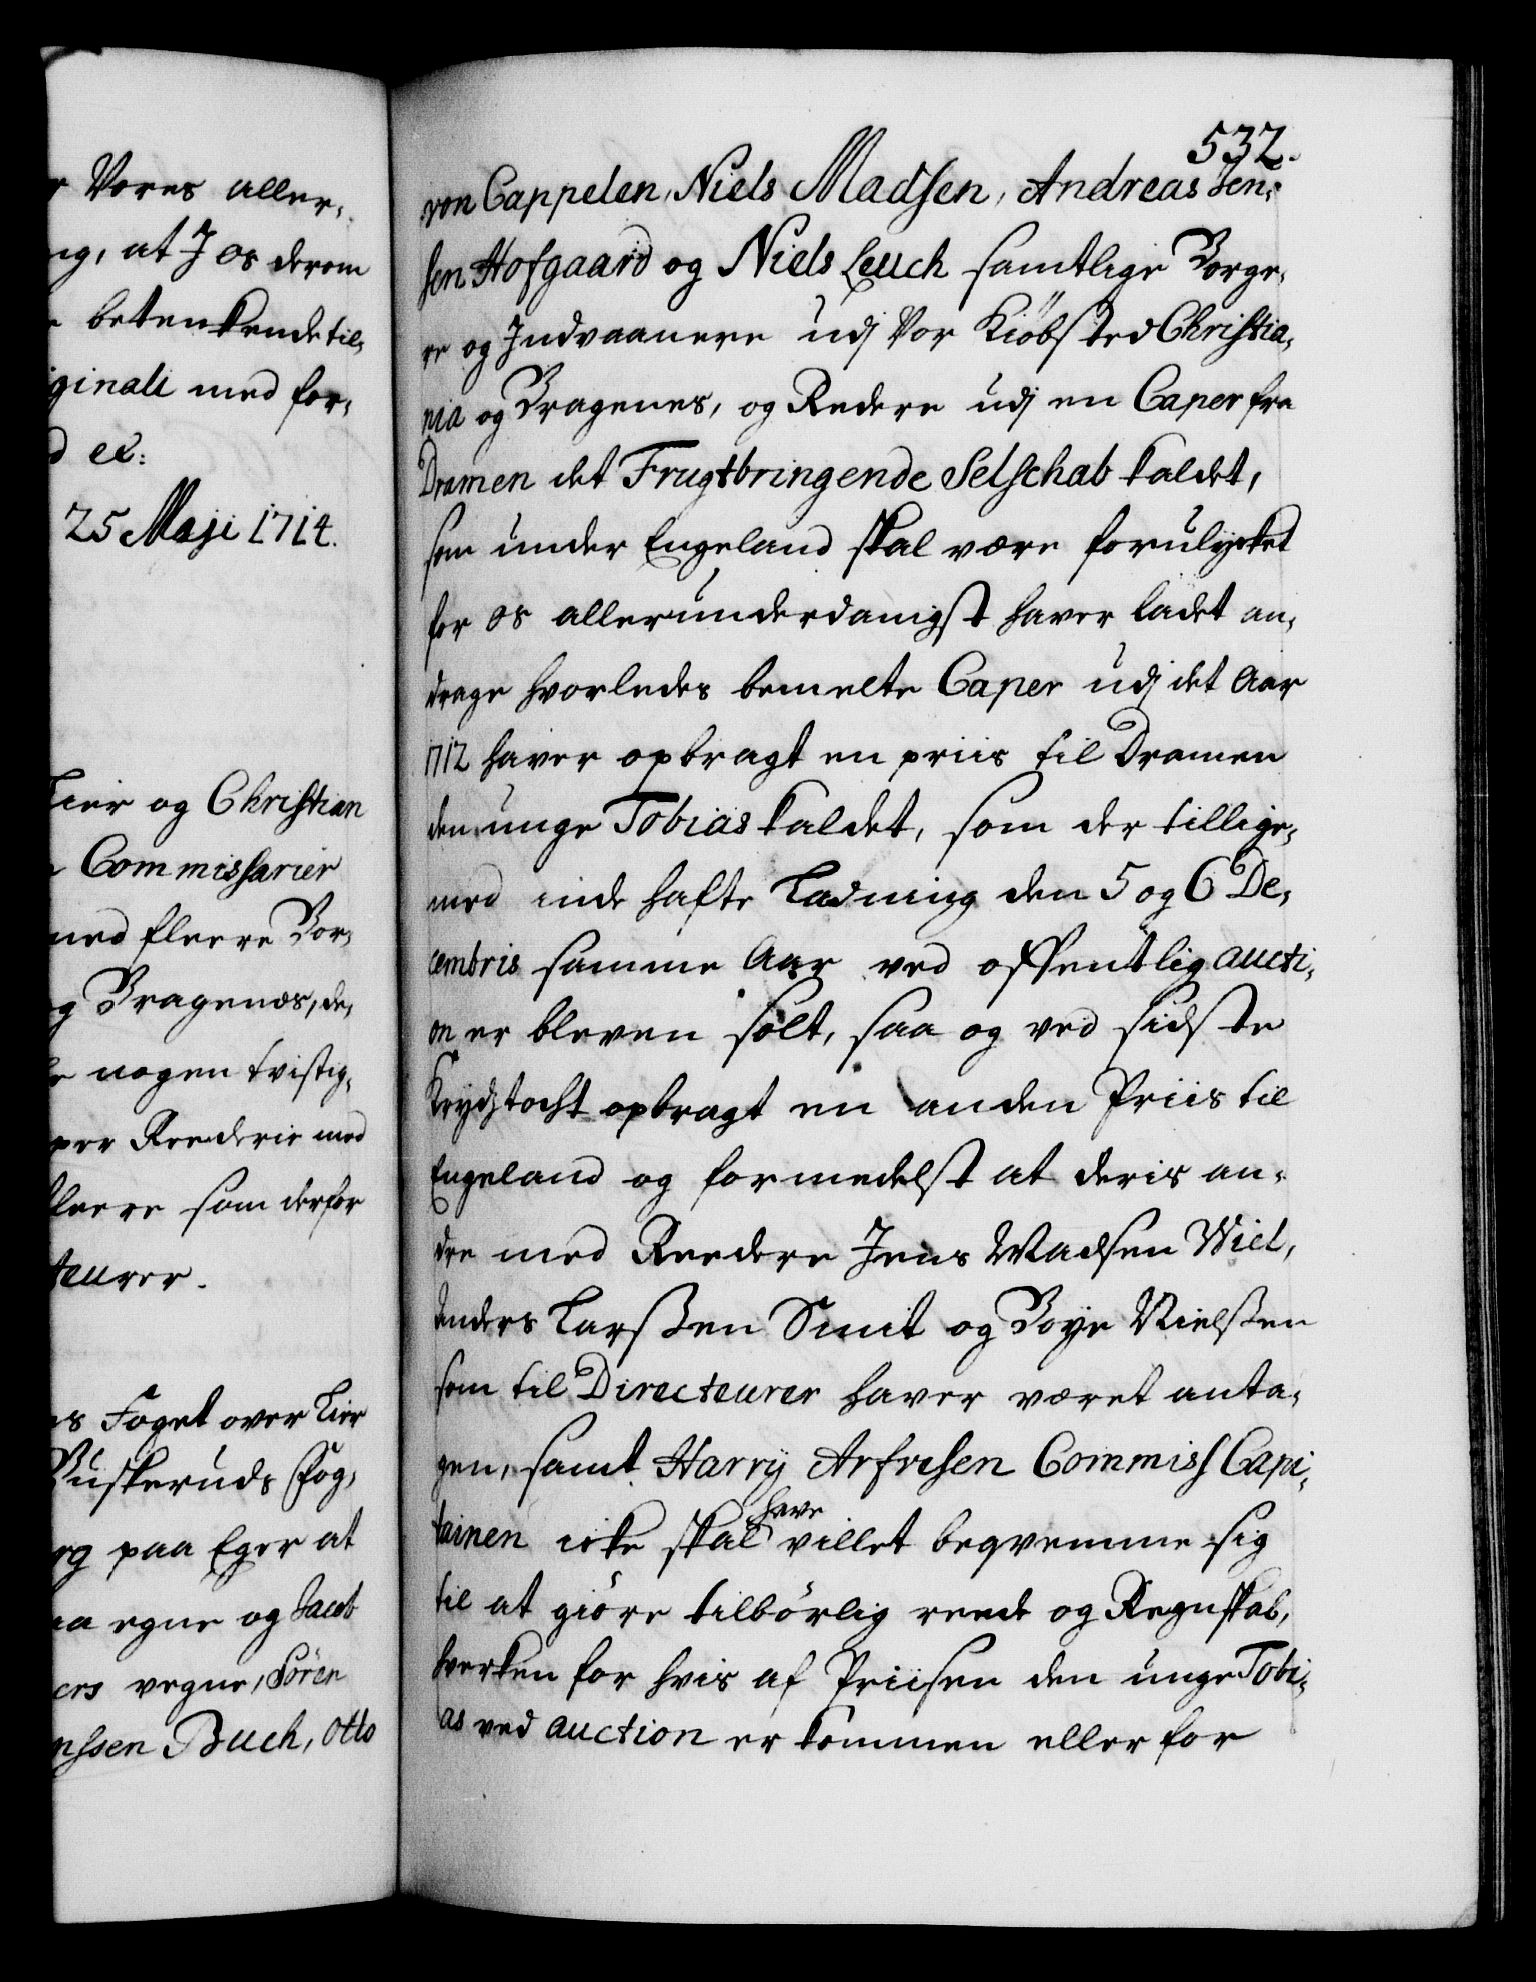 r Vores aller,
ng, at J os derom
e betenkende til,
iginali med for,
d ex:
25 Maji 1714.
Lier og Christian
n Commissarier
med fleere Bor,
g Bragenes, de,
e nogen tvistig,
per Reederie med
fleere som derfor
teurer.
es Foget over Lier
Buskeruds Fog,
rg paa Eger at
aa egne og Jacob
ers vegne, Sören
nssen Buch, Otto
532.
von Cappelen, Niels Madsen, Andreas Jen,
sen Hofgaard og Niels Leuch samtlige Borge,
re og Indvaanere udj Vor Kiöbsted Christia,
nia og Bragenes, og Redere udj en Caper fra
Dramen det Frugtbringende Selschab kaldet,
som under Engeland skal være forulycket
for os allerunderdanigst haver ladet an,
drage hvorledes bemelte Caper udj det Aar
1712 haver opbragt en priis til Dramen
den unge Tobias kaldet, som der tillige,
med inde hafte Ladning den 5 og 6 De,
cembris samme Aar ved offentlig aucti,
on er bleven solt, saa og ved sidste
Krydstocht opbragt en anden Priis til
Engeland og formedelst at deris an,
dre med Reedere Jens Madsen Wiel,
Anders Larssen Smit og Boye Nielssen
som til Directeurer haver været anta,
gen, samt Harry Arfvesen Commiss Capi,
tainen icke skal have villet beqvemme sig
til at giöre tilbörlig reede og Regnskab,
hverken for hvis af Priisen den unge Tobi,
as ved auction er kommen eller for